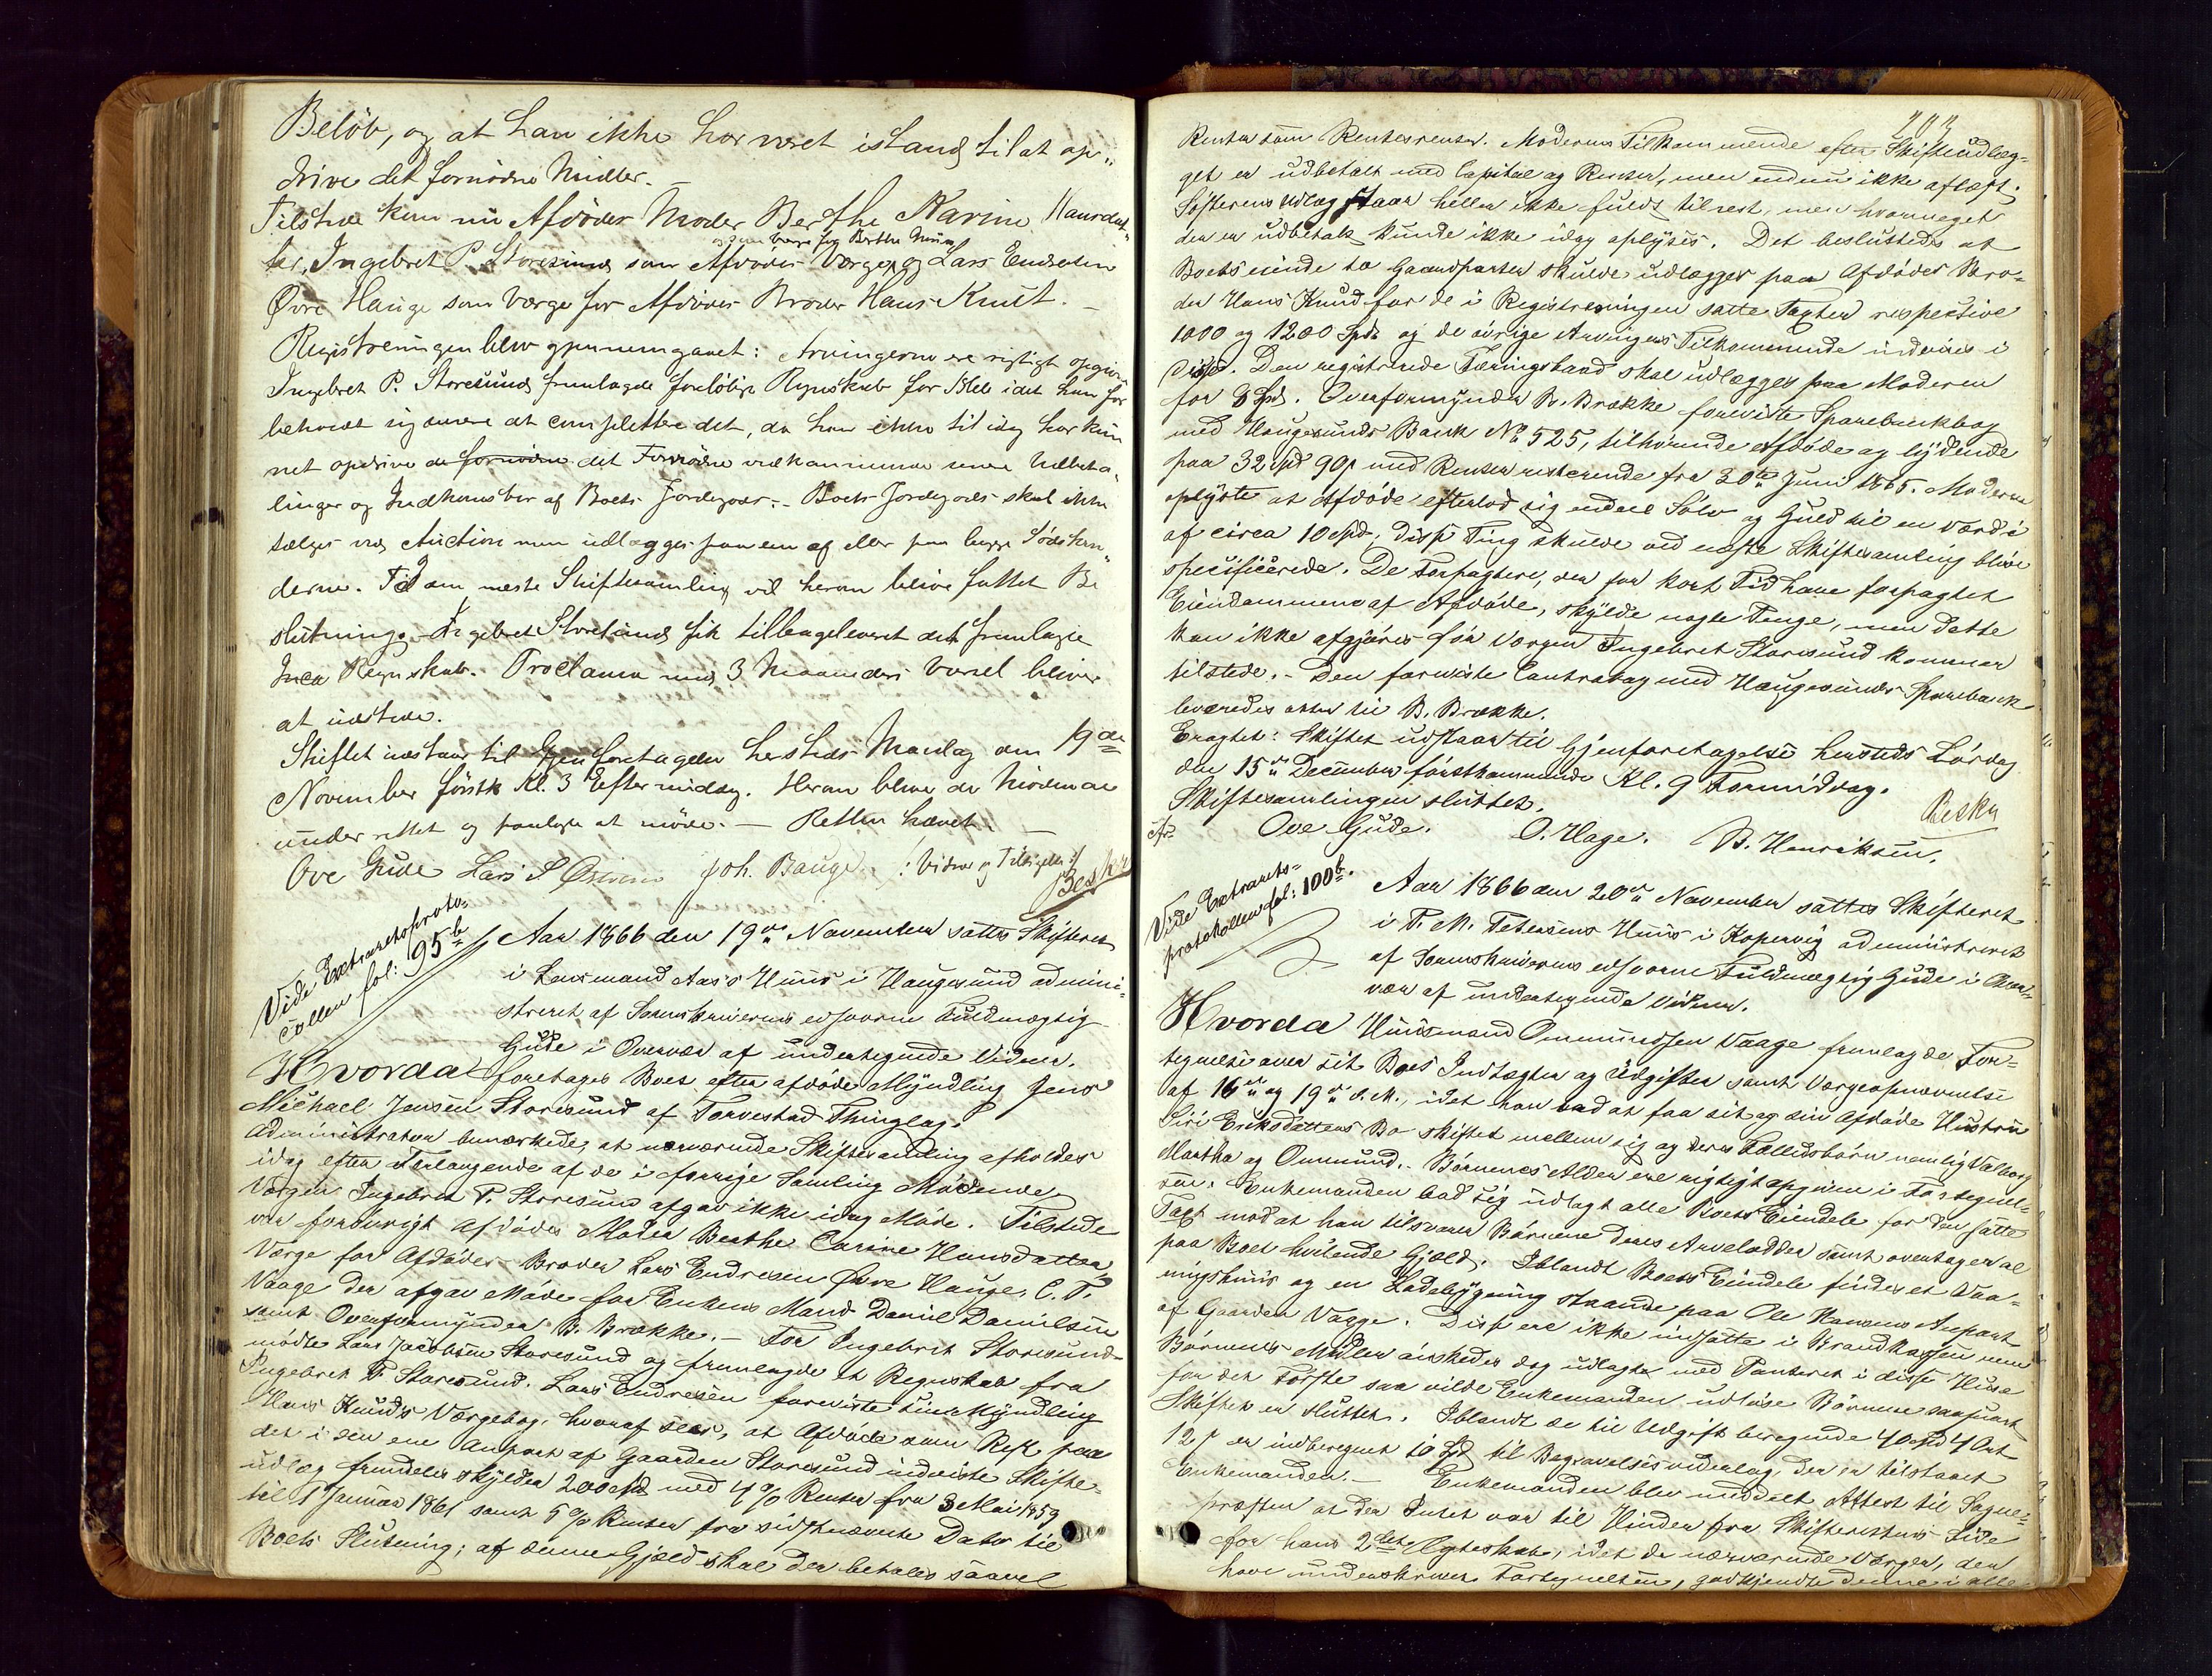 Beløb, og at han ikke har været istand til at op„
drive det fornødne Midler. —
Tilstede kom nu Afdødes Moder Berthe Karine Hansdat„
ter, Ingebret P. Storesund som Afdødes Værge, og Lars Endresen
og som Værge for Berthe
Øvre Hauge som Værge for Afdødes Broder Hans Knut. —
Registreringen blev gjennemgaaet: Arvingerne ere rigtigt opgivne
Ingebret P. Storesund fremlagde foreløbige Regnskab for Boet idet han for
beholdt sig senere at complettere det, da han ikke til idag har kun
net opdrive de fornødne det Fornødne vedkommende senere Udbeta„
linger og Indkomster af Boets Jordegods. - Boets Jordegods skal ikke
sælges ved Auction men udlægges paa een af eller paa begge Sødsken„
derne. Om næste Skiftesamling vil herom blive fattet Be
slutning. - Ingebret Storesund fik tilbageleveret det fremlagte
Regnskab. Proclama med 3 Maaneders Varsel bliver
at udstede.
Skiftet udstaar til Gjenforetagelse hersteds Mandag den 19de
November førstk Kl. 3 Eftermiddag. Herom bleve de Mødende
underrettet og paalagt at møde. — Retten hævet. —
Ove Gude Lars S Joh. Bauge. /: Vidner og Tilsigelse :/
Beskr
Vide Extraretsproto-
collen fol: 95b
Aar 1866 den 19de November sattes Skifteret
i Lensmand Aas's Huus i Haugesund admini-
streret af Sorenskriverens edsvorne Fuldmægtig
Gude i Overvær af undertegnede Vidner.
Hvorda foretages Boet efter afdøde Myndling Jens
Michael Jensen Storesund af Torvestad Thinglag.
Administrator bemærkede, at nærværende Skiftesamling afholdes
idag efter Forlangende af de i forrige Samling Mødende.
Værgen Ingebret P. Storesund afgav ikke idag Møde. Tilstede
var forøvrigt Afdødes Moder Berthe Carine Hansdatter,
Værge for Afdødes Broder Lars Endresen Øvre Hauge, C. T.
Vaage der afgav Møde for Enkens Mand Daniel Danielsen
samt Overformynder B. Brække. — For Ingebrit Storesund
mødte Lars Jacobsen Storesund og fremlagde et Regnskab fra
Ingebret P. Storesund. Lars Endresen foreviste sin Myndling
Hans Knud's Værgebog, hvoraf sees, at Afdøde som Rest paa
det i den ene Anpart af Gaarden Storesund indviiste Skifte-
udlæg fremdeles skylder 200 Spd med 4 % Renter fra 3 Mai 1859
til 1 Januar 1861 samt 5 % Renter fra sidstnævnte Dato til
Boets Slutning; af denne Gjæld skal der betales saavel
203
Renter som Rentesrenter. Moderens Tilkommende efter Skifteudlæg-
get er udbetalt med Capital og Renter, men endnu ikke aflæst;
Søsterens Udlæg staar heller ikke fuldt tilrest, men hvormeget
der er udbetalt kunde ikke idag oplyses. Det besluttedes at
Boets eiende to Gaardparter skulde udlægges paa Afdødes Bro-
der Hans Knud for de i Registreringen satte Taxter respective
1000 og 1200 Spd. og de øvrige Arvingers Tilkommende indvises i
disse. Den registrerede Tørringsbaad skal udlægges paa Moderen
for 8 Spd. Overformynder B. Brække foreviste Sparebankbog
med Haugesunds Bank No 525, tilhørende Afdøde og lydende
paa 32 Spd 90 s med Renter resterende fra 30te Juni 1865. Moderen
oplyste at Afdøde efterlod sig endeel Sølv og Guld til en Værdi
af circa 10 Spd; disse Ting skulde ved næste Skiftesamling blive
specificerede. De Forpagtere, der for kort Tid have forpagtet
Eiendommene af Afdøde, skylde nogle Penge, men dette
kan ikke afgjøres før Værgen Ingebret Storesund kommer
tilstede. - Den foreviste Contrabog med Haugesunds Sparebank
leveredes atter til B. Brække.
Eragtet: Skiftet udstaar til Gjenforetagelse hersteds Lørdag
den 15de December førstkommende Kl. 9 Formiddag.
Skiftesamlingen sluttet.
Beskr
Ove Gude. O. Hage. B. Henriksen.
Vide Extrarets-
protokollen fol: 100b.
Aar 1866 den 20de November sattes Skifteret
i P. M. Petersens Huus i Kopervig administreret
af Sorenskriverens edsvorne Fuldmægtig Gude i Over-
vær af undertegnede Vidner.
Hvorda Huusmand Ommundsen Vaage fremlagde For-
tegnelse over sit Boes Indtægter og Udgifter samt Værgeopnævnelse
af 16de og 19de d. M., idet han bad at faa sit og sin afdøde Hustru
Siri Eriksdatters Bo skiftet mellem sig og deres Fællesbørn nemlig Valborg
Martha og Ommund. - Børnenes Alder ere rigtigt opgivne i Fortegnel-
sen. Enkemanden bad sig udlagt alle Boets Eiendele for den satte
Taxt mod at han tilsvarer Børnene deres Arvelodder samt overtager al
paa Boet hvilende Gjæld. Iblandt Boets Eiendele findes et Vaa-
ningshuus og en Ladebygning staaende paa Ole Hansens Anpart
af Gaarden Vaage. Disse ere ikke indsatte i Brandkassen men
Børnenes Midler ønskedes dog udlagte med Panteret i disse Huse
for det Første saa vilde Enkemanden udløse Børnene saasnart
Skiftet er sluttet. Iblandt de til Udgift beregnede 40 Spd 4 Ort
12 s er indberegnet 10 Spd til Begravelsesvederlag, der er tilstaaet
Enkemanden. — Enkemanden blev meddelt Attest til Sogne-
præsten at der Intet var til Hinder fra Skifterettens Side
for hans 2det Ægteskab, idet de nærværende Værger, der
have underskrevet Fortegnelsen, godkjendte denne i alle